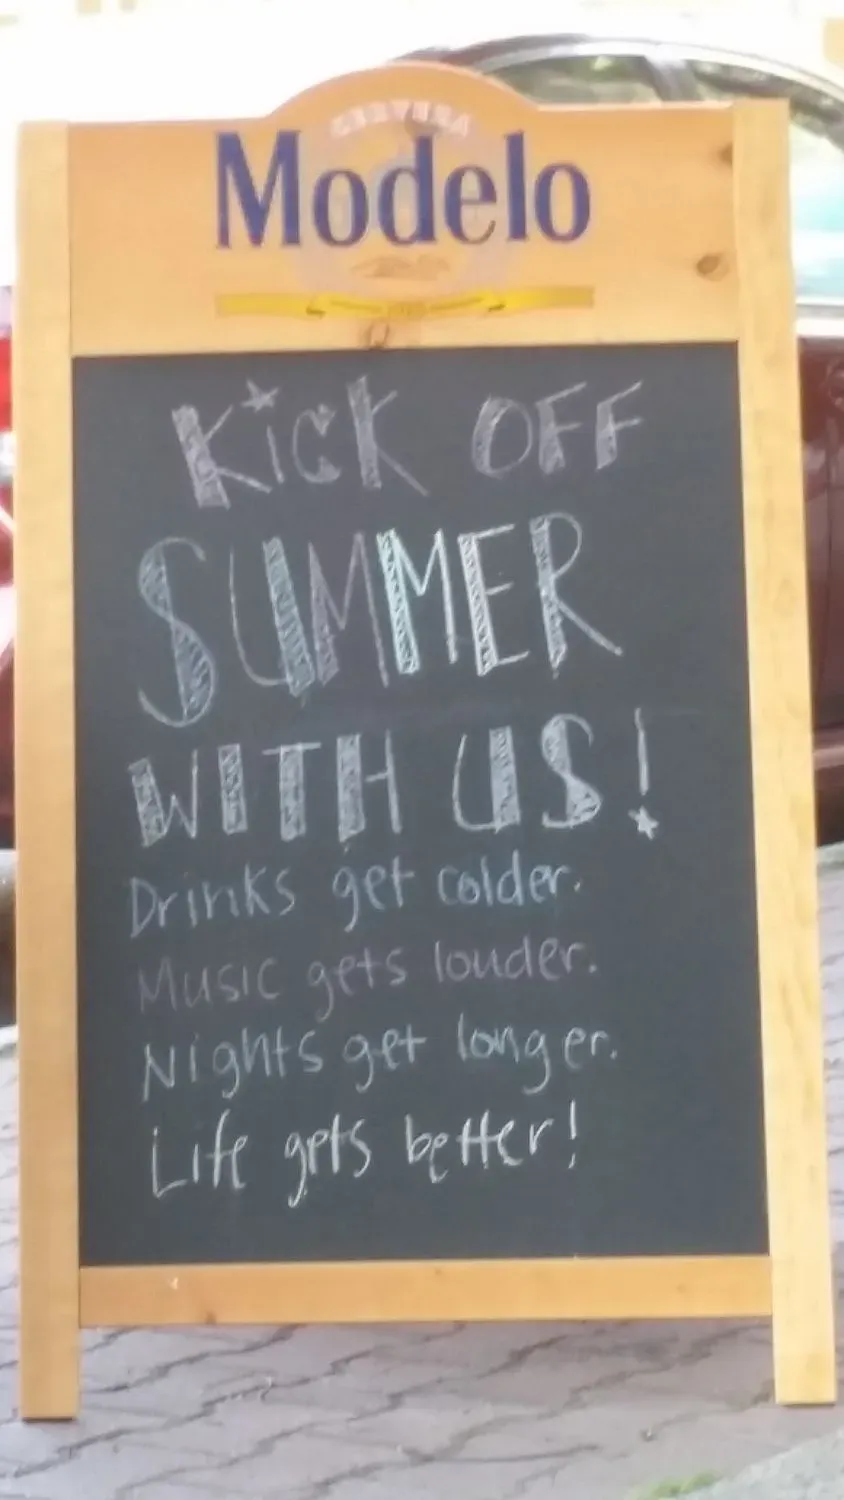 CERVEZA
Modelo
KiCK OFF
SUMMER
WITH US!
Drinks get colder.
Music gets louder.
Nights get longer.
Life gets better!